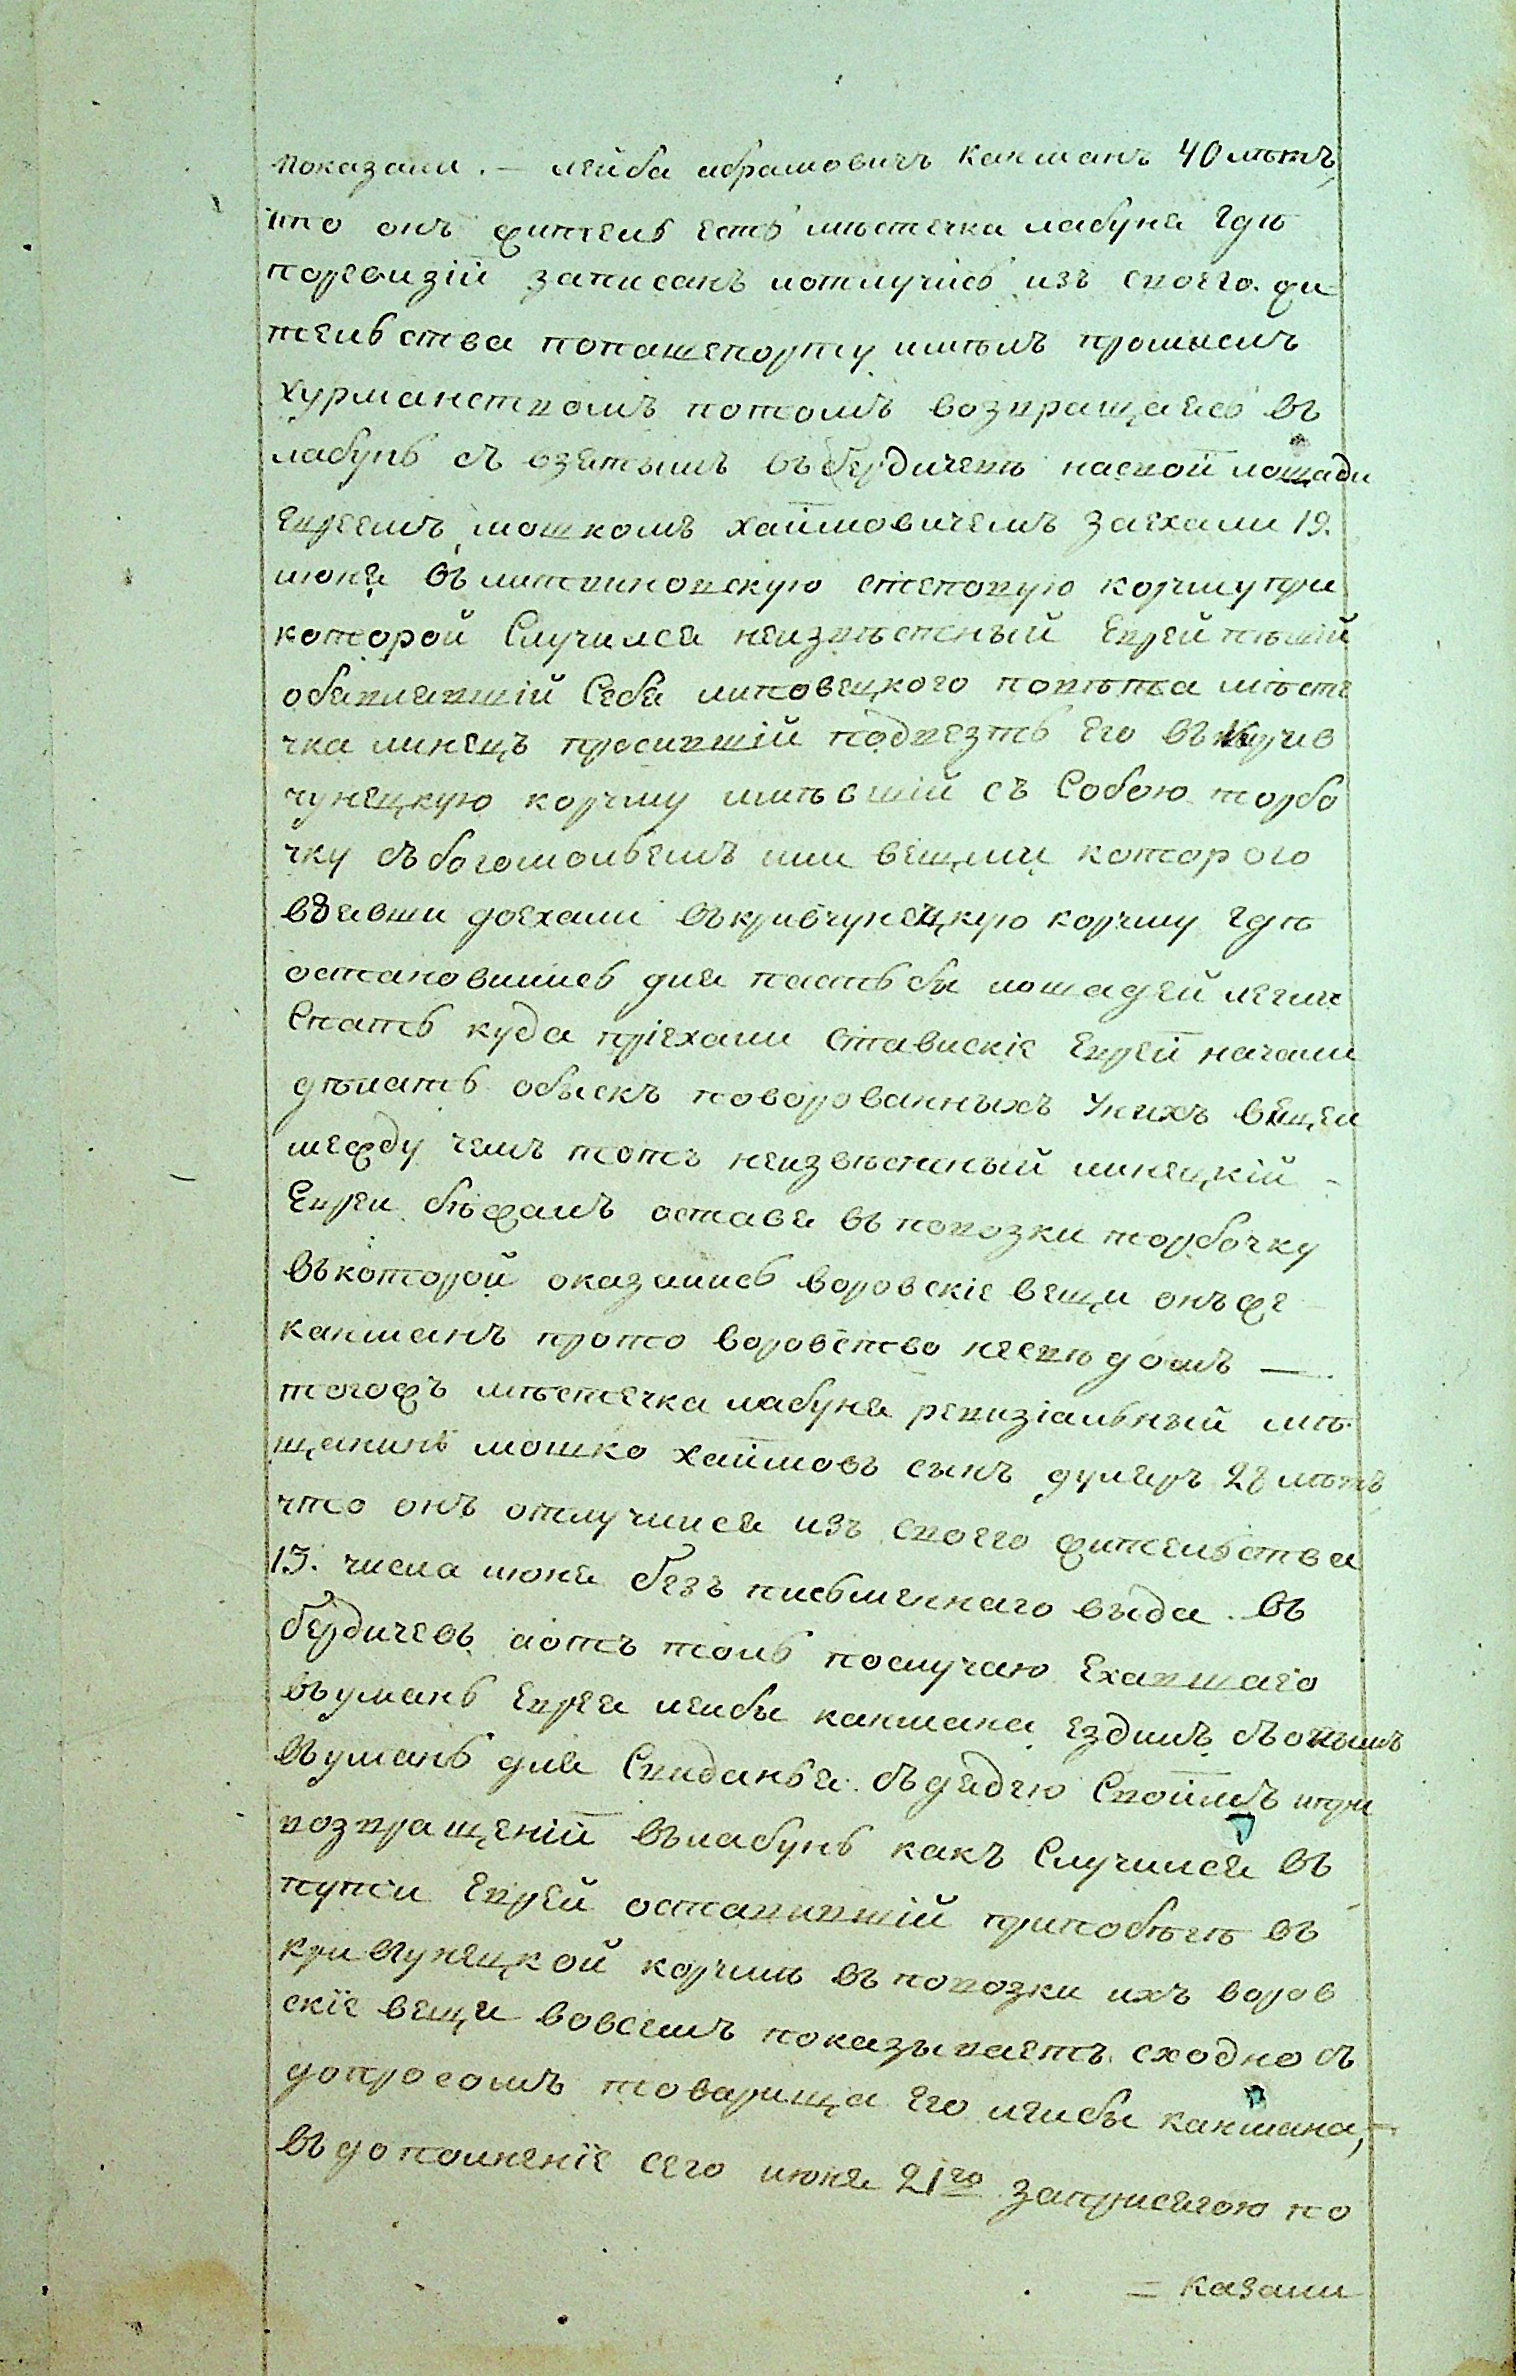 показали. — лейба абрамовичъ Канманъ 40 лѣтъ
что онъ житель есть мѣстечка лабуня гдѣ
поревизіи записанъ иотлучісь изъ своего жи
тельства попашепорту имѣлъ промыслъ
хурманствомъ потомъ возвращаясь въ
лабунь съ взятымъ въ бердичевѣ насвой лошади
Евреемъ мошкомъ хаймовичемъ заехали 19.
июня въ литвиновскую степовую корчму при
которой Случился неизвѣстный Еврей пѣшій
обявлявшій Себя липовецкого повѣта мѣсте
чка линецъ просившій подвезть Его въ крив
чунецкую корчму имѣвшій съ Собою торбо
чку съ богомольемъ или вещми которого
взявши доехали въкривчунецкую корчму гдѣ
остановились для пастьбы лошадей легли
Спать куда пріехали Ставискіе Евреи начали
дѣлать обыскъ поворованныхъ Унихъ вещей
между чемъ тотъ неизвѣстный линецкій -
Еврей бѣжалъ оставя въ повозки торбочку
въкоторой оказались воровскіе вещи онъ же
канманъ прото воровство несвѣдомъ —
тогожъ мѣстечка лабуня ревизіальный мѣ
щанинъ мошко хаймовъ сынъ дуляръ 28 лѣтъ
что онъ отлучился изъ своего жительства
13. числа июня безъ письменнаго выда въ
бердичевъ аотъ толь послучаю Ехавшаго
въумань Еврея лейбы канмана ездилъ съ онымъ
въумань для Свиданья съ дядею Своимъ ипри
возвращеніи въ лабунь какъ Случился въ
пути Еврей оставившій припобѣгѣ въ
кривчунецкой корчмѣ въ повозки ихъ воров
скіе вещи вовсемъ показываетъ сходно съ
допросомъ товарища Его лейбы канмана, —
въ дополненіе сего июня 21го заприсягою по
= казали